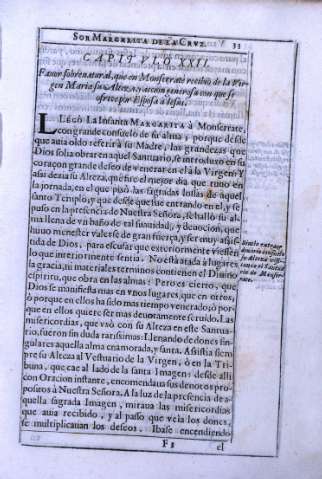 SOR MARGARITA DE LA CRVZ. 33
CAPITVLO XXII.
Fauor sobrenatural, que en Monserrate recibiò de la Vir-
gen Maria su Alteza, y accion generosa con que se
ofrece por Esposa à Iesus.
LLEGÒ La Infanta MARGARITA à Monserrate,
con grande consuelo de su alma, porque desde
que auia oìdo referir à su Madre, las grandezas que
Dios solia obrar en aquel Santuario, se introduxo en su
coraçon grande deseo de venerar en èl à la Virgen: Y
assi dezia su Alteza, que fue el mejor dia que tuuo en
la jornada, en el que pisò las sagradas losas de aquel
santo Templo, y que desde que fue entrando en el, y se
puso en la presencia de Nuestra Señora, se hallò su al-
ma llena de vn baño de tal suauidad, y deuocion, que
huuo menester valerse de gran fuerça, y ser muy assis-
tida de Dios, para escusar que exteriormente viessen
lo que interiormente sentia. No està atada à lugares
la gracia, ni materiales terminos contienen el Diuino
espiritu, que obra en las almas: Pero es cierto, que
Dios se manifiesta mas en vnos lugares, que en otros,
ò porque en ellos ha sido mas tiempo venerado, ò por-
que en ellos quiere ser mas deuotamente seruido. Las
misericordias, que vsò con su Alteza en este Santua-
rio, fueron sin duda rarissimas: Llenando de dones sin-
gulares aquella alma enamorada, y santa. Assistia siem-
pre su Alteza al Vestuario de la Virgen, ò en la Tri-
buna, que cae al lado de la santa Imagen: desde alli
con Oracion instante, encomendaua sus deuotos pro-
positos à Nuestra Señora. A la luz de la presencia de a-
quella sagrada Imagen, miraua las misericordias
que auia recibido, y al passo que veìa los dones,
se multiplicauan los deseos. Ibase encendiendo
F 3 el
su Alteza